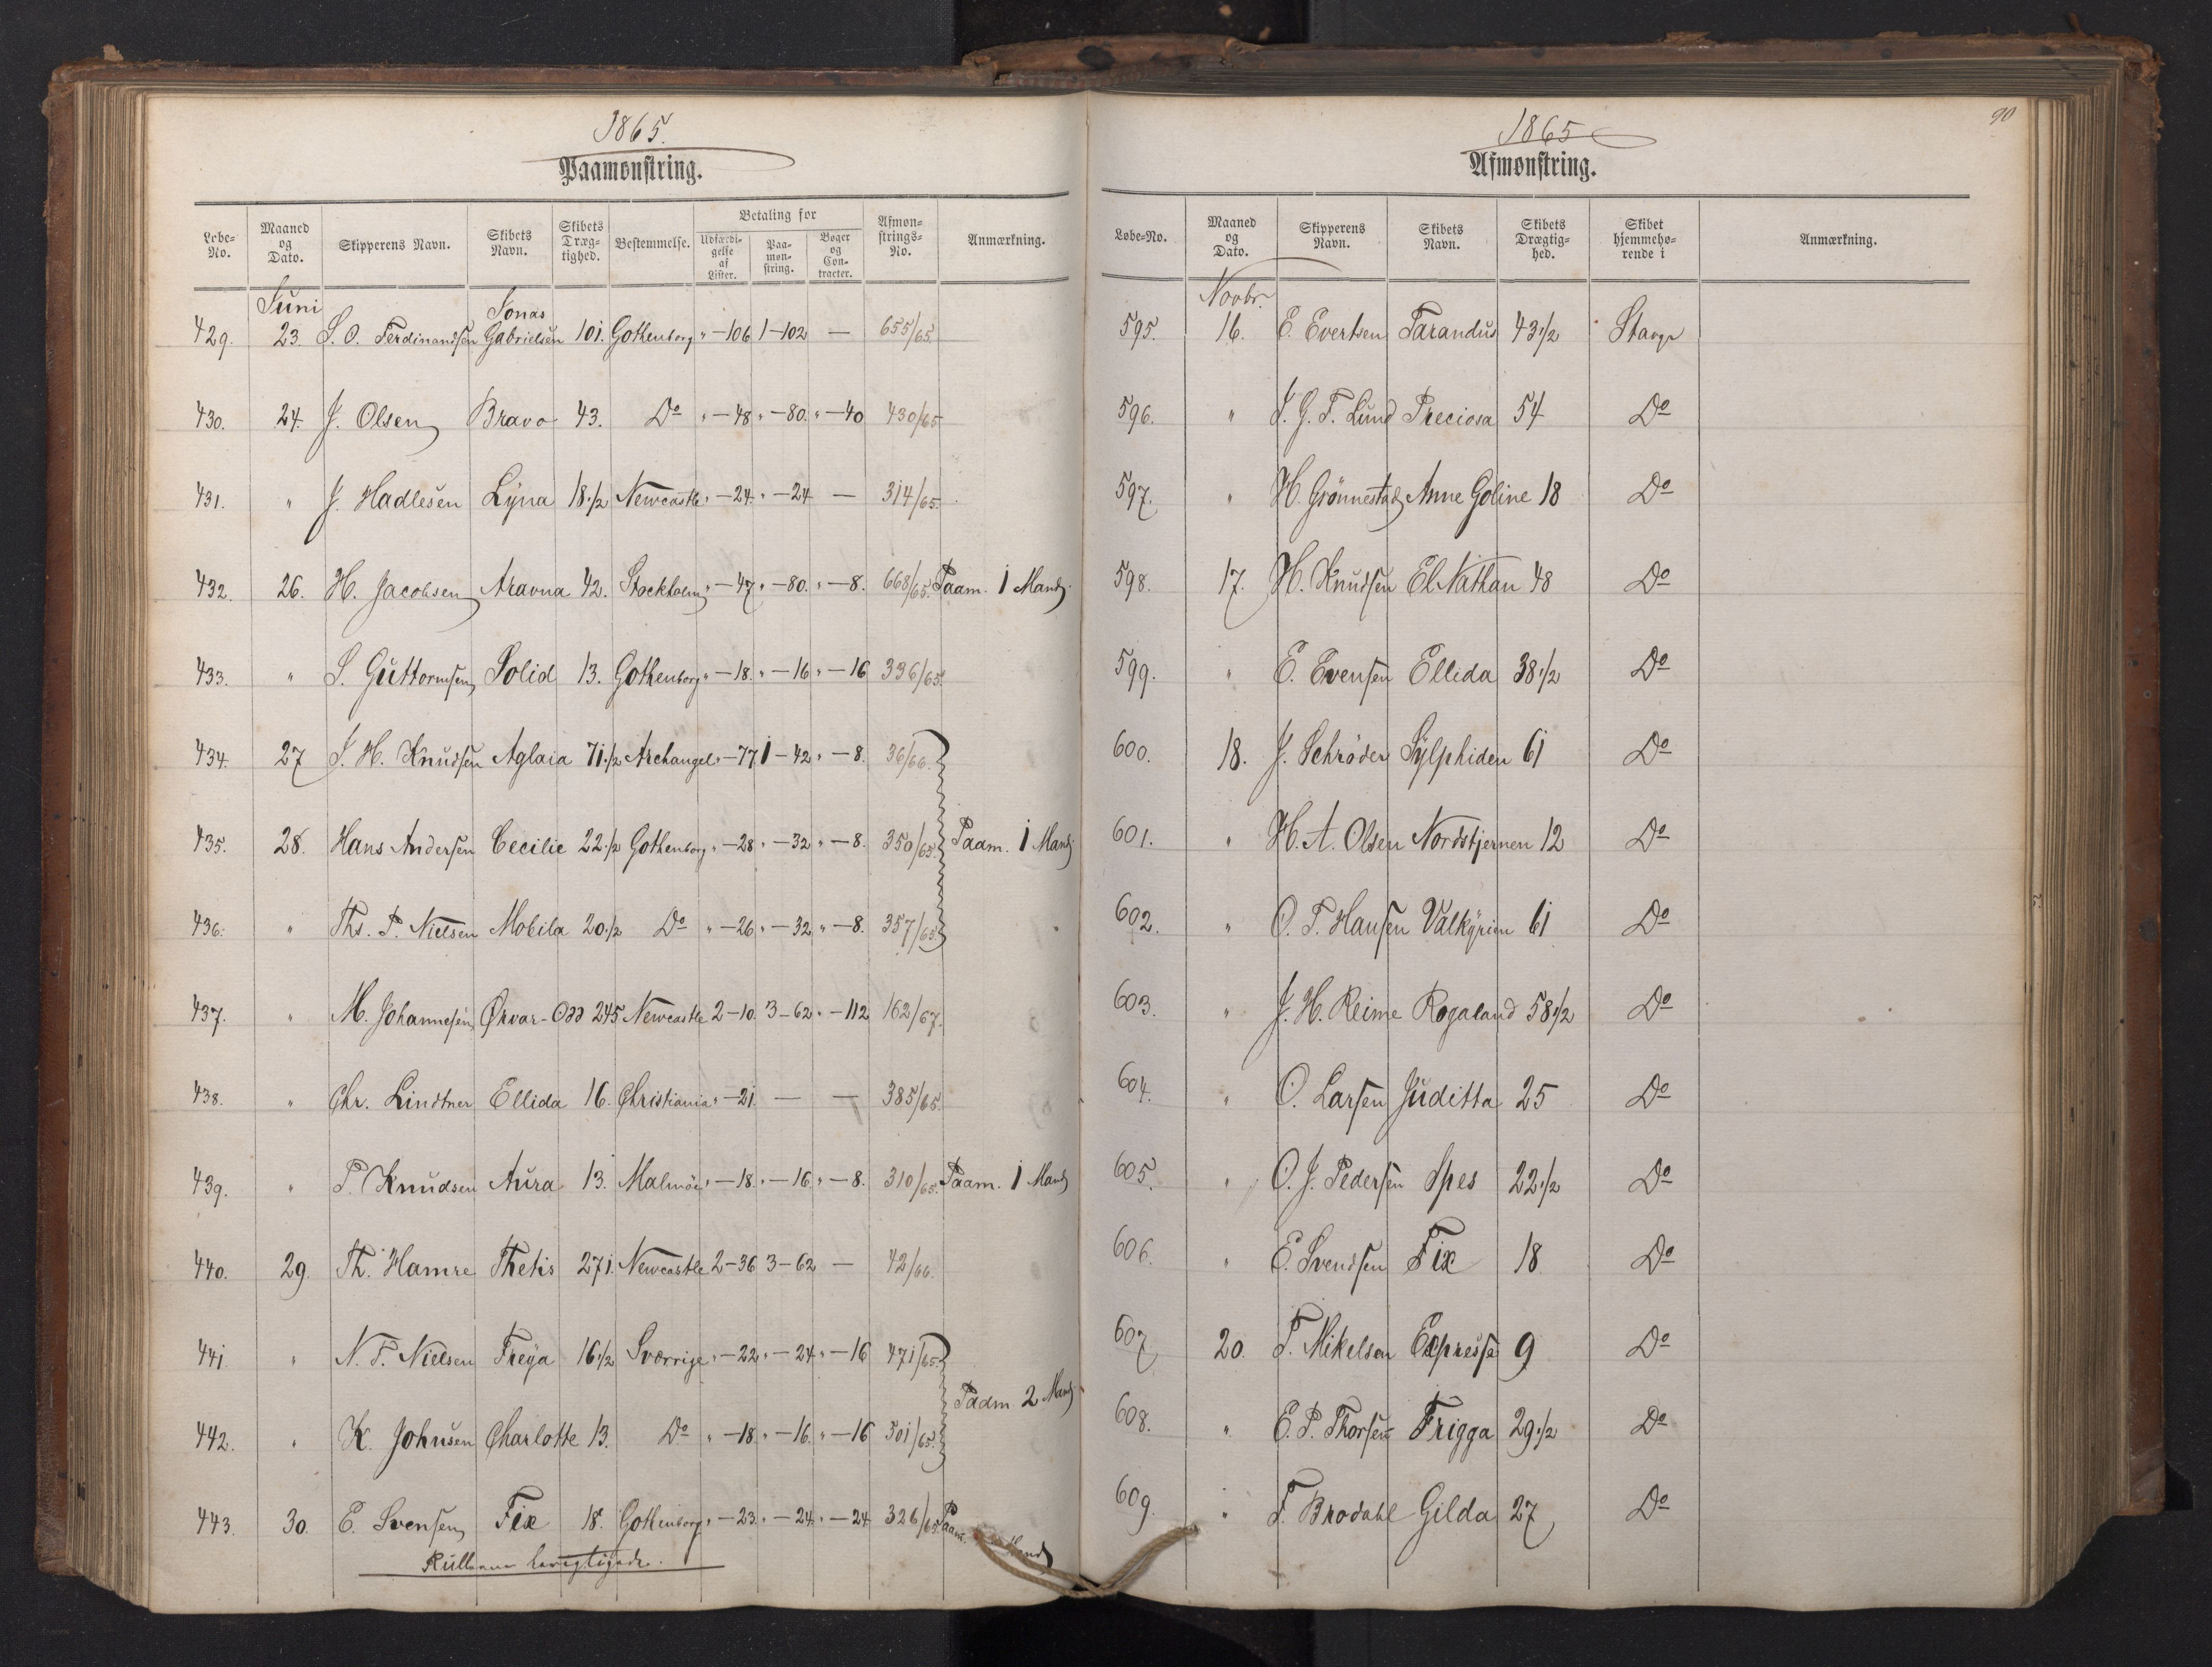 1865.
Paamønstring.
Løbe-No. Maaned og Dato. Skipperens Navn. Skibets Navn. Skibets Dræg-tighed. Bestemmelse. Betaling for Udfærdi-gelse af Lister. Paa-møn-string. Bøger og Con-tracter. Afmøn-strings-No. Anmærkning.
Juni
429. 23. S. O. Ferdinandsen Jonas Gabrielsen 101. Gothenborg " — 106 1 — 102 — 655/65.
430. 24. J. Olsen Bravo 43. Do " — 48 " — 80. " — 40 430/65
431. " J. Hadlesen Lyna 18 1/2 Newcastle " — 24. " — 24 — 314/65.
432. 26. H. Jacobsen Aravna 42. Stockholm " — 47 " — 80. " — 8. 668/65. Paam. 1 Mand
433. " S. Guttormsen Solid 13. Gothenborg " — 18. " — 16 " — 16 336/65.
434. 27 J. H. Knudsen Aglaia 71 1/2 Archangel " — 77 1 — 42 " — 8. 36/66.
435. 28. Hans Andersen Cecilie 22 1/2 Gothenborg " — 28 " — 32 " — 8. 350/65. Paam. 1 Mand
436. " Ths. P. Nielsen Mobila 20 1/2 Do " — 26 " — 32 " — 8. 357/65.
437. " M. Johannesen Ørvar-Odd 245 Newcastle 2 — 10. 3 — 62 " — 112 162/67.
438. " Chr. Lindtner Ellida 16. Christiania " — 21. — — 385/65.
439. " P. Knudsen Aura 13. Malmöe " — 18. " — 16. " — 8. 310/65. Paam. 1 Mand
440. 29. Th. Hamre Thetis 271. Newcastle 2 — 36 3 — 62 — 42/66.
441. " N. T. Nielsen Freya 16 1/2 Sverrige " — 22 " — 24 " — 16 471/65
Paam 2 Mand
442. " K. Johnsen Charlotte 13. Do " — 18. " — 16. " — 16 301/65.
443. 30. E. Svensen Fix 18. Gothenborg " — 23. " — 24. " — 24 326/65 Paam. Mand
1865
90
Afmønstring.
Løbe-No. Maaned og Dato. Skipperens Navn. Skibets Navn. Skibets Drægtig-hed. Skibet hjemmehø-rende i Anmærkning.
Novbr.
595. 16. E. Evertsen Tarandus 43 1/2 Stavgr
596. " J. G. T. Lund Preciosa 54 Do
597. " H. Grönnestad Anne Goline 18 Do
598. 17. H. Knudsen El Nathan 48 Do
599. " E. Evensen Ellida 38 1/2 Do
600. 18. J. Schrøder Sylphiden 61 Do
601. " H. A. Olsen Nordstjernen 12 Do
602. " O. T. Hansen Valkyrien 61 Do
603. " J. H. Reime Rogaland 58 1/2 Do
604. " O. Larsen Juditta 25 Do
605. " O. J. Pedersen Spes 22 1/2 Do
606. " E. Svendsen Fix 18 Do
607. 20. T. Mikelsen Expresse 9 Do
608. " E. P. Thorsen Frigga 29 1/2 Do
609. " F. Brodahl Gilda 27 Do